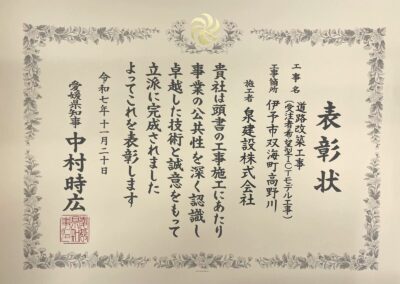 表彰状
工事名 道路改築工事
(受注者希望型ICTモデル工事)
工事箇所 伊予市双海町高野川
施工者 泉建設株式会社
貴社は頭書の工事施工にあたり
事業の公共性を深く認識し
卓越した技術と誠意をもって
立派に完成されました
よってこれを表彰します
令和七年十一月二十日
愛媛県知事 中村時広